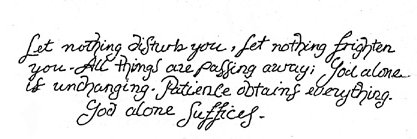 Let nothing disturb you, let nothing frighten
you. All things are passing away; God alone
is unchanging. Patience obtains everything.
God alone suffices.